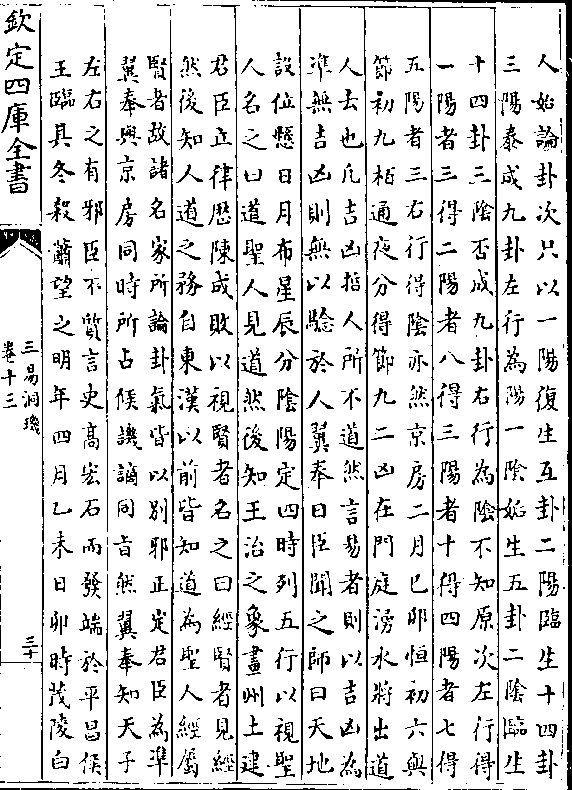 人始論卦次只以一陽復生互卦二陽臨生十四卦
三陽泰成九卦左行為陽一陰姤生五卦二陰臨生
十四卦三陰否成九卦右行為陰不知原次左行得
一陽者三得二陽者八得三陽者十得四陽者七得
五陽者三右行得陰亦然京房二月己卯恒初六與
節初九相通夜分得節九二凶在門庭湧水將出道
人去也凡吉凶指人所不道然言易者則以吉凶為
準無吉凶則無以驗於人翼奉曰臣聞之師曰天地
設位懸日月布星辰分陰陽定四時列五行以視聖
人名之曰道聖人見道然後知王治之象畫州土建
君臣立律歴陳成敗以視賢者名之曰經賢者見經
然後知人道之務自東漢以前皆知道為聖人經屬
賢者故諸名家所論卦氣皆以別邪正定君臣為準
翼奉與京房同時所占候譏謫同旨然翼奉知天子
左右之有邪臣不質言史髙宏石而發端於平昌侯
王臨其冬殺蕭望之明年四月乙未日卯時茂陵白
欽定四庫全書
三易洞璣
卷十三
三十